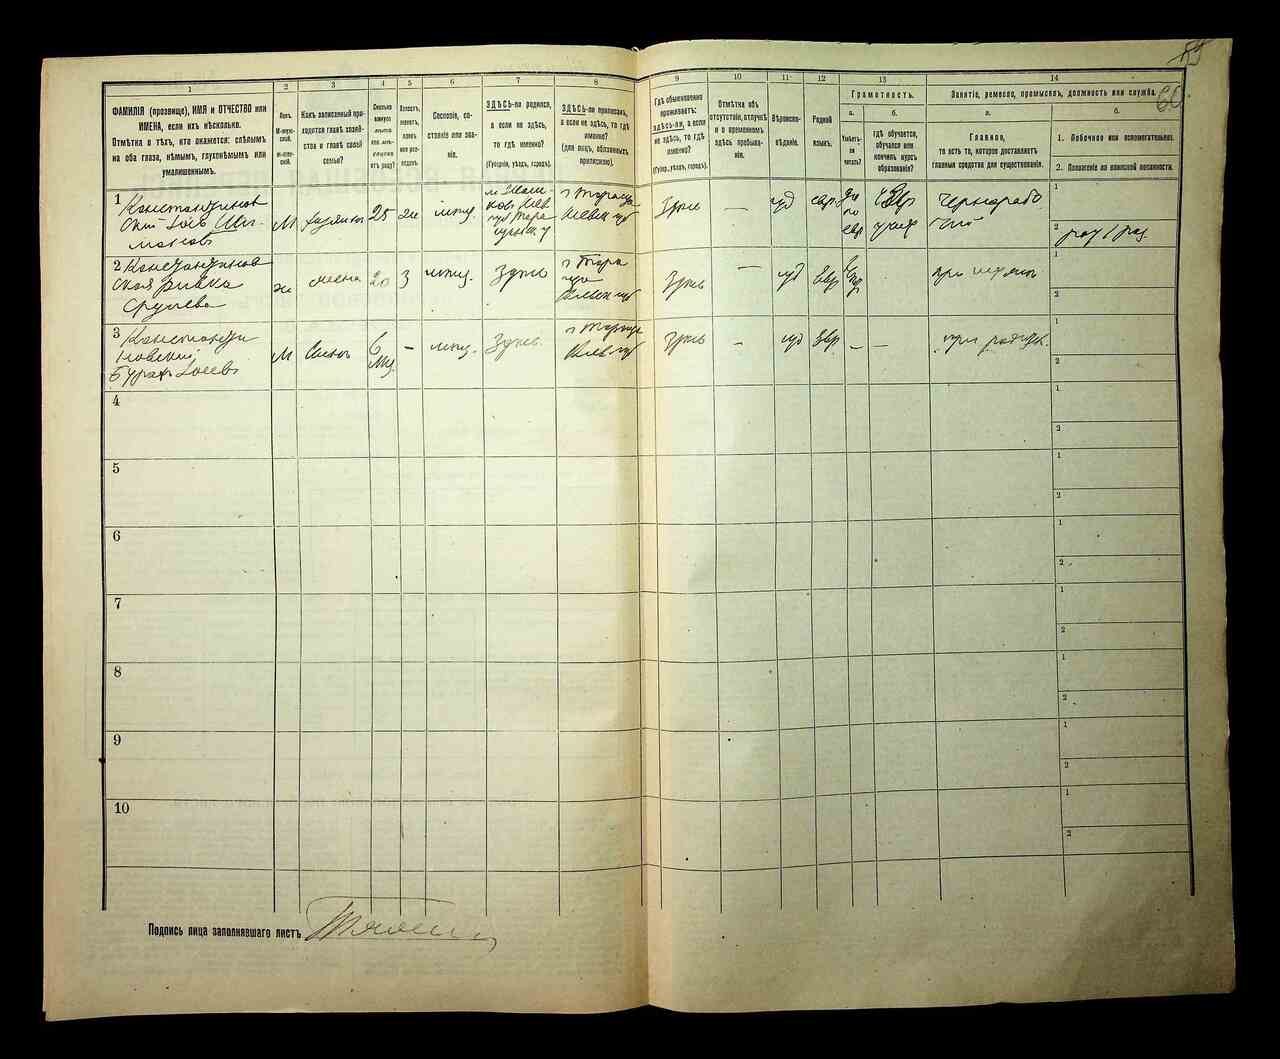 1 2 3 4 5 6 7 8 9 10 11 12 13 14
ФАМИЛІЯ (прозвище), ИМЯ и ОТЧЕСТВО или
ИМЕНА, если ихъ нѣсколько.
Отмѣтка о тѣхъ, кто окажется: слѣпымъ
на оба глаза, нѣмымъ, глухонѣмымъ или
умалишеннымъ.
Полъ.
М-мужской.
Ж-женской.
Какъ записанный приходится
главѣ хозяйства
и главѣ своей
семьи?
Сколько
минуло
лѣтъ
или мѣсяцевъ
отъ роду?
Холостъ,
женатъ,
вдовъ
или разведенъ.
Сословіе, состояніе
или званіе.
ЗДѢСЬ-ли родился,
а если не здѣсь,
то гдѣ именно?
(Губернія, уѣздъ, городъ).
ЗДѢСЬ-ли приписанъ,
а если не здѣсь, то гдѣ
именно?
(для лицъ, обязанныхъ
припискою).
Гдѣ обыкновенно
проживаетъ:
здѣсь-ли, а если
не здѣсь, то гдѣ
именно?
(Губер., уѣздъ, городъ).
Отмѣтка объ
отсутствіи, отлучкѣ
и о временномъ
здѣсь пребываніи.
Вѣроисповѣданіе.
Родной
языкъ.
Грамотность.
а. б.
Умѣетъ-ли
читать?
гдѣ обучается,
обучался или
кончилъ курсъ
образованія?
Занятіе, ремесло, промыселъ, должность или служба.
а. б.
Главное,
то есть то, которое доставляетъ
главныя средства для существованія.
1. Побочное или вспомогательное.
2. Положеніе по воинской повинности.
60
1
Константинов
М
хозяинъ
25
г Тараща
Киевск губ
здѣсь
—
іуд
евр
чернорабо
чий
1
2
2
Константинов
ская Ривка
Срулева
ж
жена
20
3
здѣсь
г Тара
ща
Киевск губ
здѣсь
—
іуд
Евр
при мужѣ
1
2
3
Константи
новский
М
Сынъ
6
мц
–
здѣсь
г Тараща
Киев губ
здѣсь
–
іуд
Евр
—
—
при родит.
1
2
4
1
2
5
1
2
6
1
2
7
1
2
8
1
2
9
1
2
10
1
2
Подпись лица заполнявшаго листъ